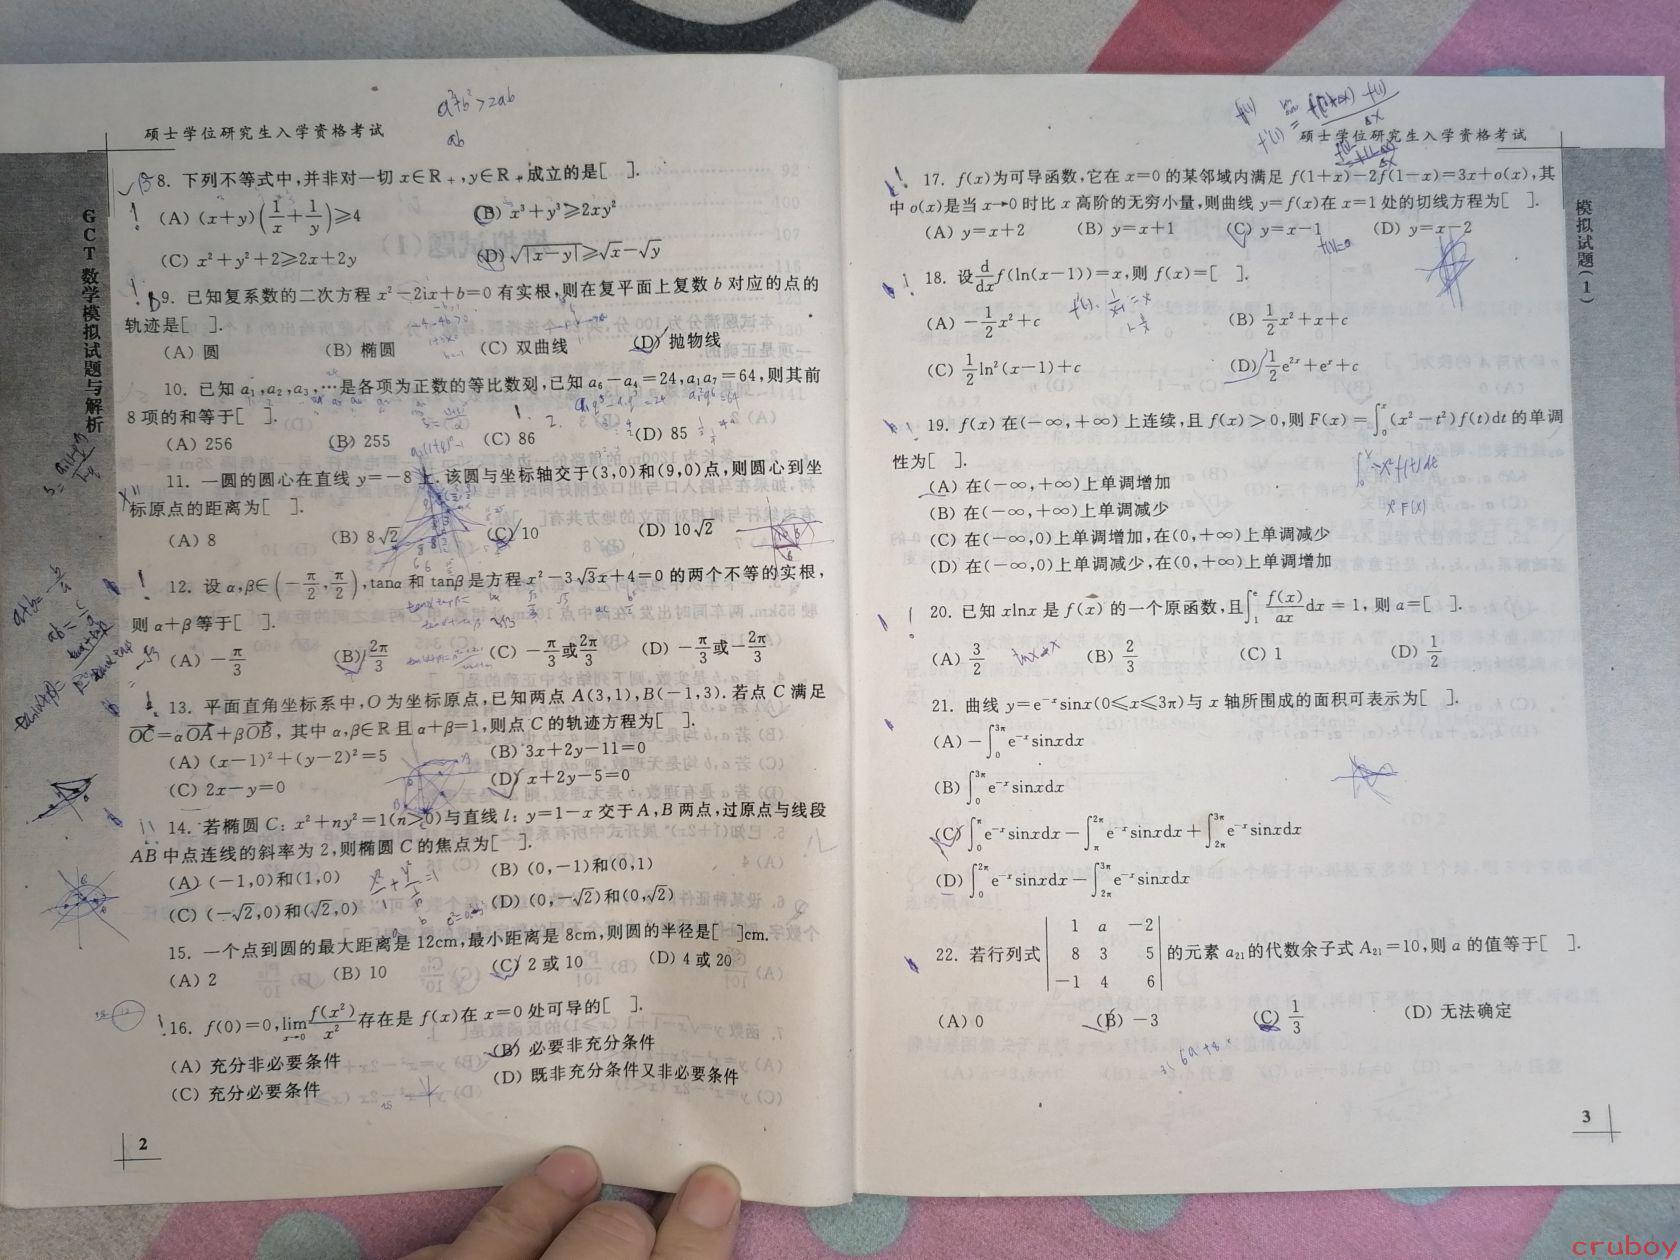 硕士学位研究生入学资格考试
GCT数学模拟试题与解析
a²+b²>2ab
ab
8. 下列不等式中,并非对一切 x∈R₊,y∈R₊成立的是[ ].
(A) (x+y)(1/x+1/y)≥4
(B) x³+y³≥2xy²
(C) x²+y²+2≥2x+2y
(D) √|x−y|≥√x−√y
9. 已知复系数的二次方程 x²−2ix+b=0 有实根,则在复平面上复数 b 对应的点的
轨迹是[ ].
(A) 圆 (B) 椭圆 (C) 双曲线 (D) 抛物线
10. 已知 a₁,a₂,a₃,…是各项为正数的等比数列,已知 a₆−a₄=24,a₁a₇=64,则其前
8 项的和等于[ ].
(A) 256 (B) 255 (C) 86 (D) 85
11. 一圆的圆心在直线 y=−8 上.该圆与坐标轴交于(3,0)和(9,0)点,则圆心到坐
标原点的距离为[ ].
(A) 8 (B) 8√2 (C) 10 (D) 10√2
12. 设 α,β∈(−π/2,π/2),tanα 和 tanβ 是方程 x²−3√3x+4=0 的两个不等的实根,
则 α+β 等于[ ].
(A) −π/3 (B) 2π/3 (C) −π/3或2π/3 (D) −π/3或−2π/3
13. 平面直角坐标系中,O 为坐标原点,已知两点 A(3,1),B(−1,3).若点 C 满足
OC=αOA+βOB, 其中 α,β∈R 且 α+β=1,则点 C 的轨迹方程为[ ].
(A) (x−1)²+(y−2)²=5
(B) 3x+2y−11=0
(C) 2x−y=0
(D) x+2y−5=0
14. 若椭圆 C: x²+ny²=1(n>0)与直线 l: y=1−x 交于 A,B 两点,过原点与线段
AB 中点连线的斜率为 2,则椭圆 C 的焦点为[ ].
(A) (−1,0)和(1,0)
(B) (0,−1)和(0,1)
(C) (−√2,0)和(√2,0)
(D) (0,−√2)和(0,√2)
15. 一个点到圆的最大距离是 12cm,最小距离是 8cm,则圆的半径是[ ]cm.
(A) 2 (B) 10 (C) 2 或 10 (D) 4 或 20
16. f(0)=0,lim x→0 f(x²)/x² 存在是 f(x)在 x=0 处可导的[ ].
(A) 充分非必要条件
(B) 必要非充分条件
(C) 充分必要条件
(D) 既非充分条件又非必要条件
2
硕士学位研究生入学资格考试
模拟试题(1)
17. f(x)为可导函数,它在 x=0 的某邻域内满足 f(1+x)−2f(1−x)=3x+o(x),其
中 o(x)是当 x→0 时比 x 高阶的无穷小量,则曲线 y=f(x)在 x=1 处的切线方程为[ ].
(A) y=x+2 (B) y=x+1 (C) y=x−1 (D) y=x−2
18. 设 d/dx f(ln(x−1))=x,则 f(x)=[ ].
(A) −1/2x²+c
(B) 1/2x²+x+c
(C) 1/2ln²(x−1)+c
(D) 1/2e²ˣ+eˣ+c
19. f(x)在(−∞,+∞)上连续,且 f(x)>0,则 F(x)=∫₀ˣ(x²−t²)f(t)dt 的单调
性为[ ].
(A) 在(−∞,+∞)上单调增加
(B) 在(−∞,+∞)上单调减少
(C) 在(−∞,0)上单调增加,在(0,+∞)上单调减少
(D) 在(−∞,0)上单调减少,在(0,+∞)上单调增加
20. 已知 xlnx 是 f(x)的一个原函数,且∫₁ᵉ f(x)/ax dx = 1, 则 a=[ ].
(A) 3/2 (B) 2/3 (C) 1 (D) 1/2
21. 曲线 y=e⁻ˣsinx(0≤x≤3π)与 x 轴所围成的面积可表示为[ ].
(A) −∫₀^3π e⁻ˣsinxdx
(B) ∫₀^3π e⁻ˣsinxdx
(C) ∫₀^π e⁻ˣsinxdx−∫π^2π e⁻ˣsinxdx+∫2π^3π e⁻ˣsinxdx
(D) ∫₀^2π e⁻ˣsinxdx−∫2π^3π e⁻ˣsinxdx
22. 若行列式 |1 a −2; 8 3 5; −1 4 6| 的元素 a₂₁的代数余子式 A₂₁=10,则 a 的值等于[ ].
(A) 0 (B) −3 (C) 1/3 (D) 无法确定
3
cruboy